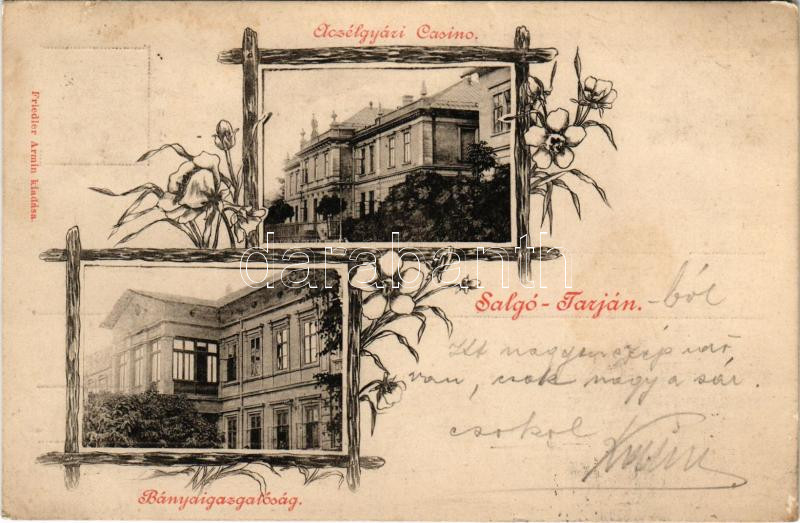 Aczélgyári Casino.
Friedler Armin kiadása.
darabanth
Salgó-Tarján. -ból
Itt nagyon szép idő
van, csak nagy a sár.
csokol
Bányaigazgatóság.